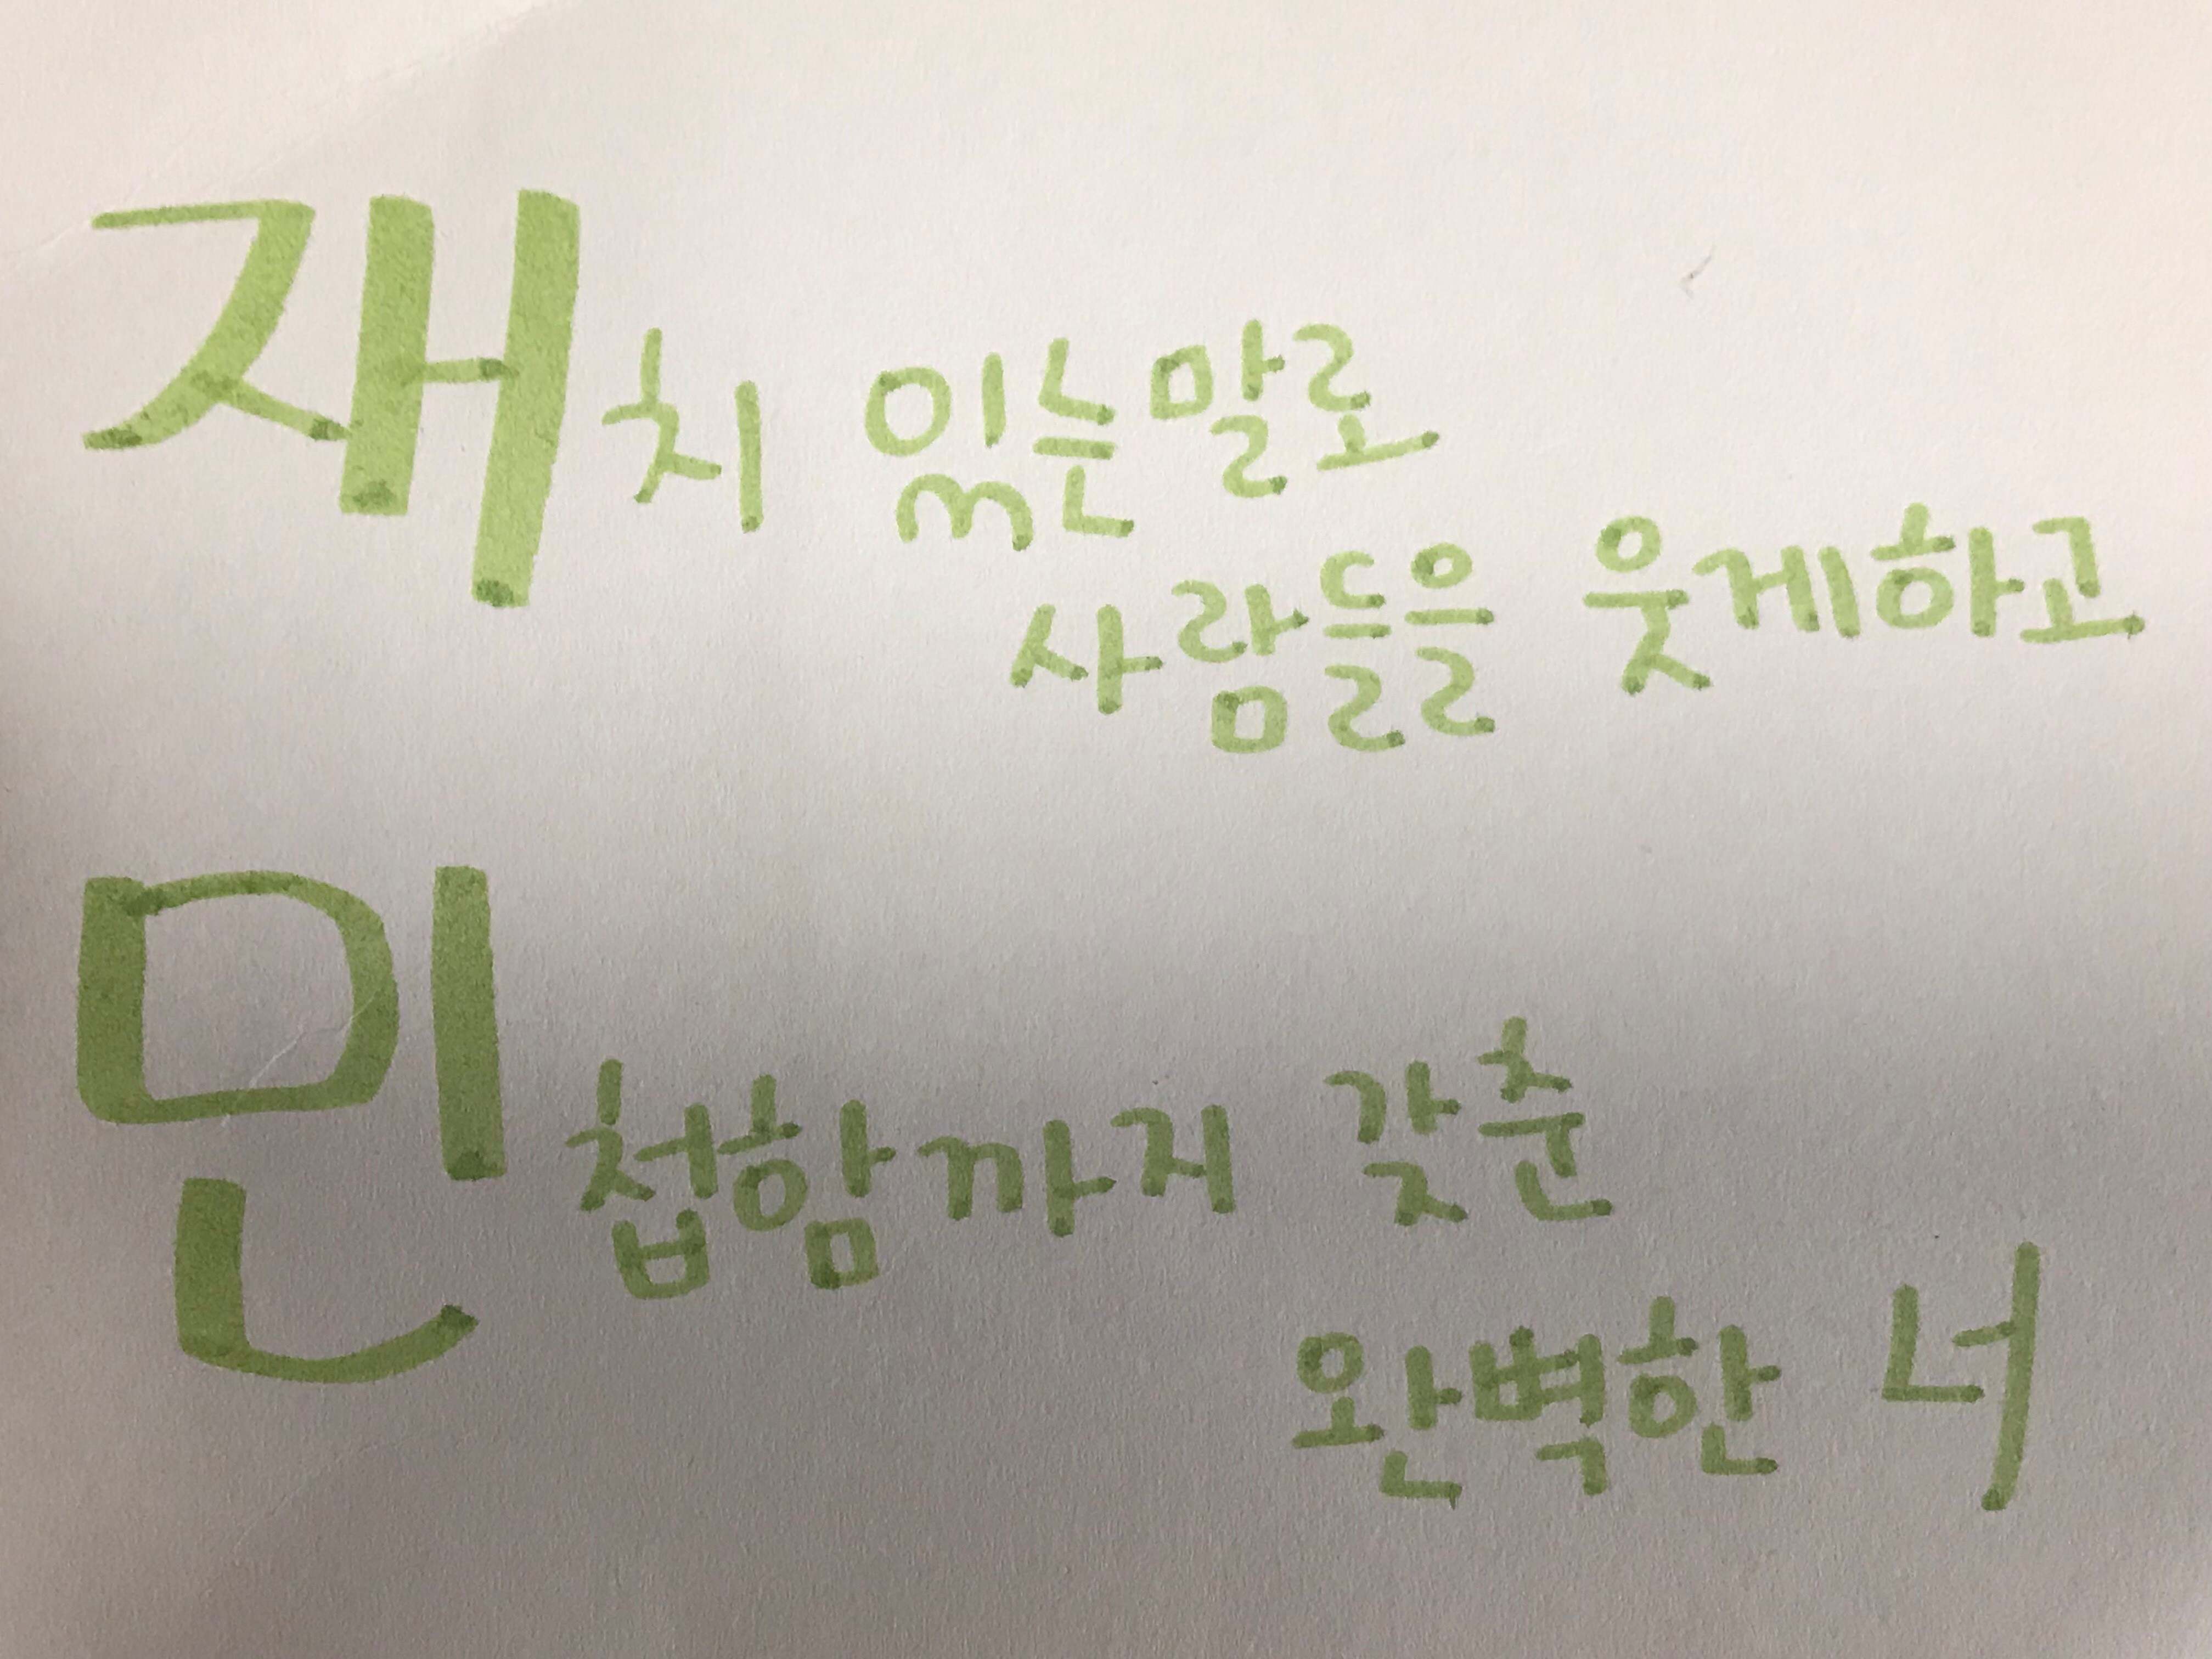 재치 있는 말로
사람들을 웃게하고
민첩함까지 갖춘
완벽한 너